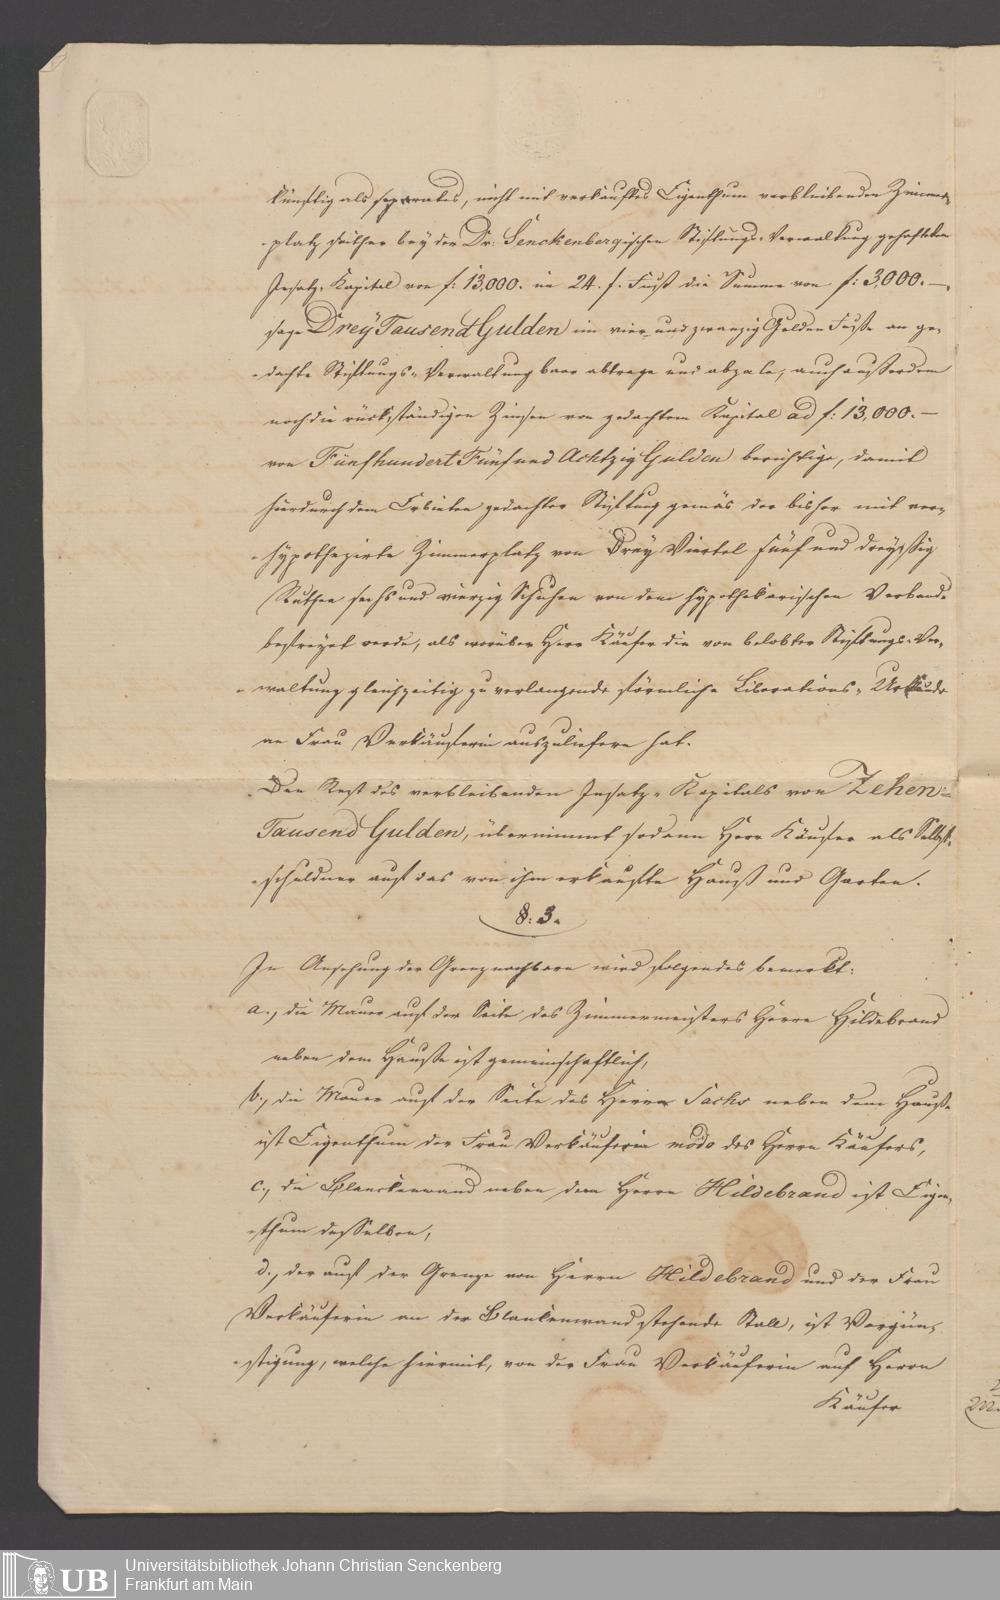 künftig als separates, nicht mit verkauftes Eigenthum verbleibenden Zimmer-
-platz seither bey der Dr: Senckenbergischen Stiftungs-Verwaltung gehafteten
Insatz-Kapital von f: 13,000. im 24. f. Fuß die Summe von f: 3,000.—,
sage Drey Tausend Gulden im vier und zwanzig Gulden Fuße an ge-
-dachte Stiftungs-Verwaltung baar abtrage und abzale, auch außerdem
noch die rückständigen Zinsen von gedachtem Kapital ad f: 13,000.—
von Fünfhundert Fünf und Achtzig Gulden berichtige, damit
hierdurch dem Erbieten gedachter Stiftung gemäs der bisher mit ver-
-hypothezirte Zimmerplatz von Drey Viertel fünf und dreyßig
Ruthen sechs und vierzig Schuhen von dem hypothekarischen Verbande
befreyet werde, als worüber Herr Käufer die von belobter Stiftungs-Ver-
-waltung gleichzeitig zu verlangende förmliche Liberations-Urkunde
an Frau Verkäuferin auszuliefern hat.
Den Rest des verbleibenden Insatz-Kapitals von Zehen-
Tausend Gulden, übernimmt sodann Herr Käufer als Selbst-
-schuldner auf das von ihm erkaufte Hauß und Garten.
§: 3.
In Ansehung der Grenznachbarn wird folgendes bemerkt:
a., die Mauer auf der Seite des Zimmermeisters Herrn Hildebrand
neben dem Hauße ist gemeinschaftlich,
b., die Mauer auf der Seite des Herrn Sachs neben dem Hauße
ist Eigenthum der Frau Verkäuferin modo des Herrn Käufers,
c., die Planckenwand neben dem Herrn Hildebrand ist Eigen-
-thum desselben,
d., der auf der Grenze von Herrn Hildebrand und der Frau
Verkäuferin an der Plankenwand stehende Stall, ist Vergün-
-stigung, welche hiermit, von der Frau Verkäuferin auf Herrn
Käufer
UB
Universitätsbibliothek Johann Christian Senckenberg
Frankfurt am Main